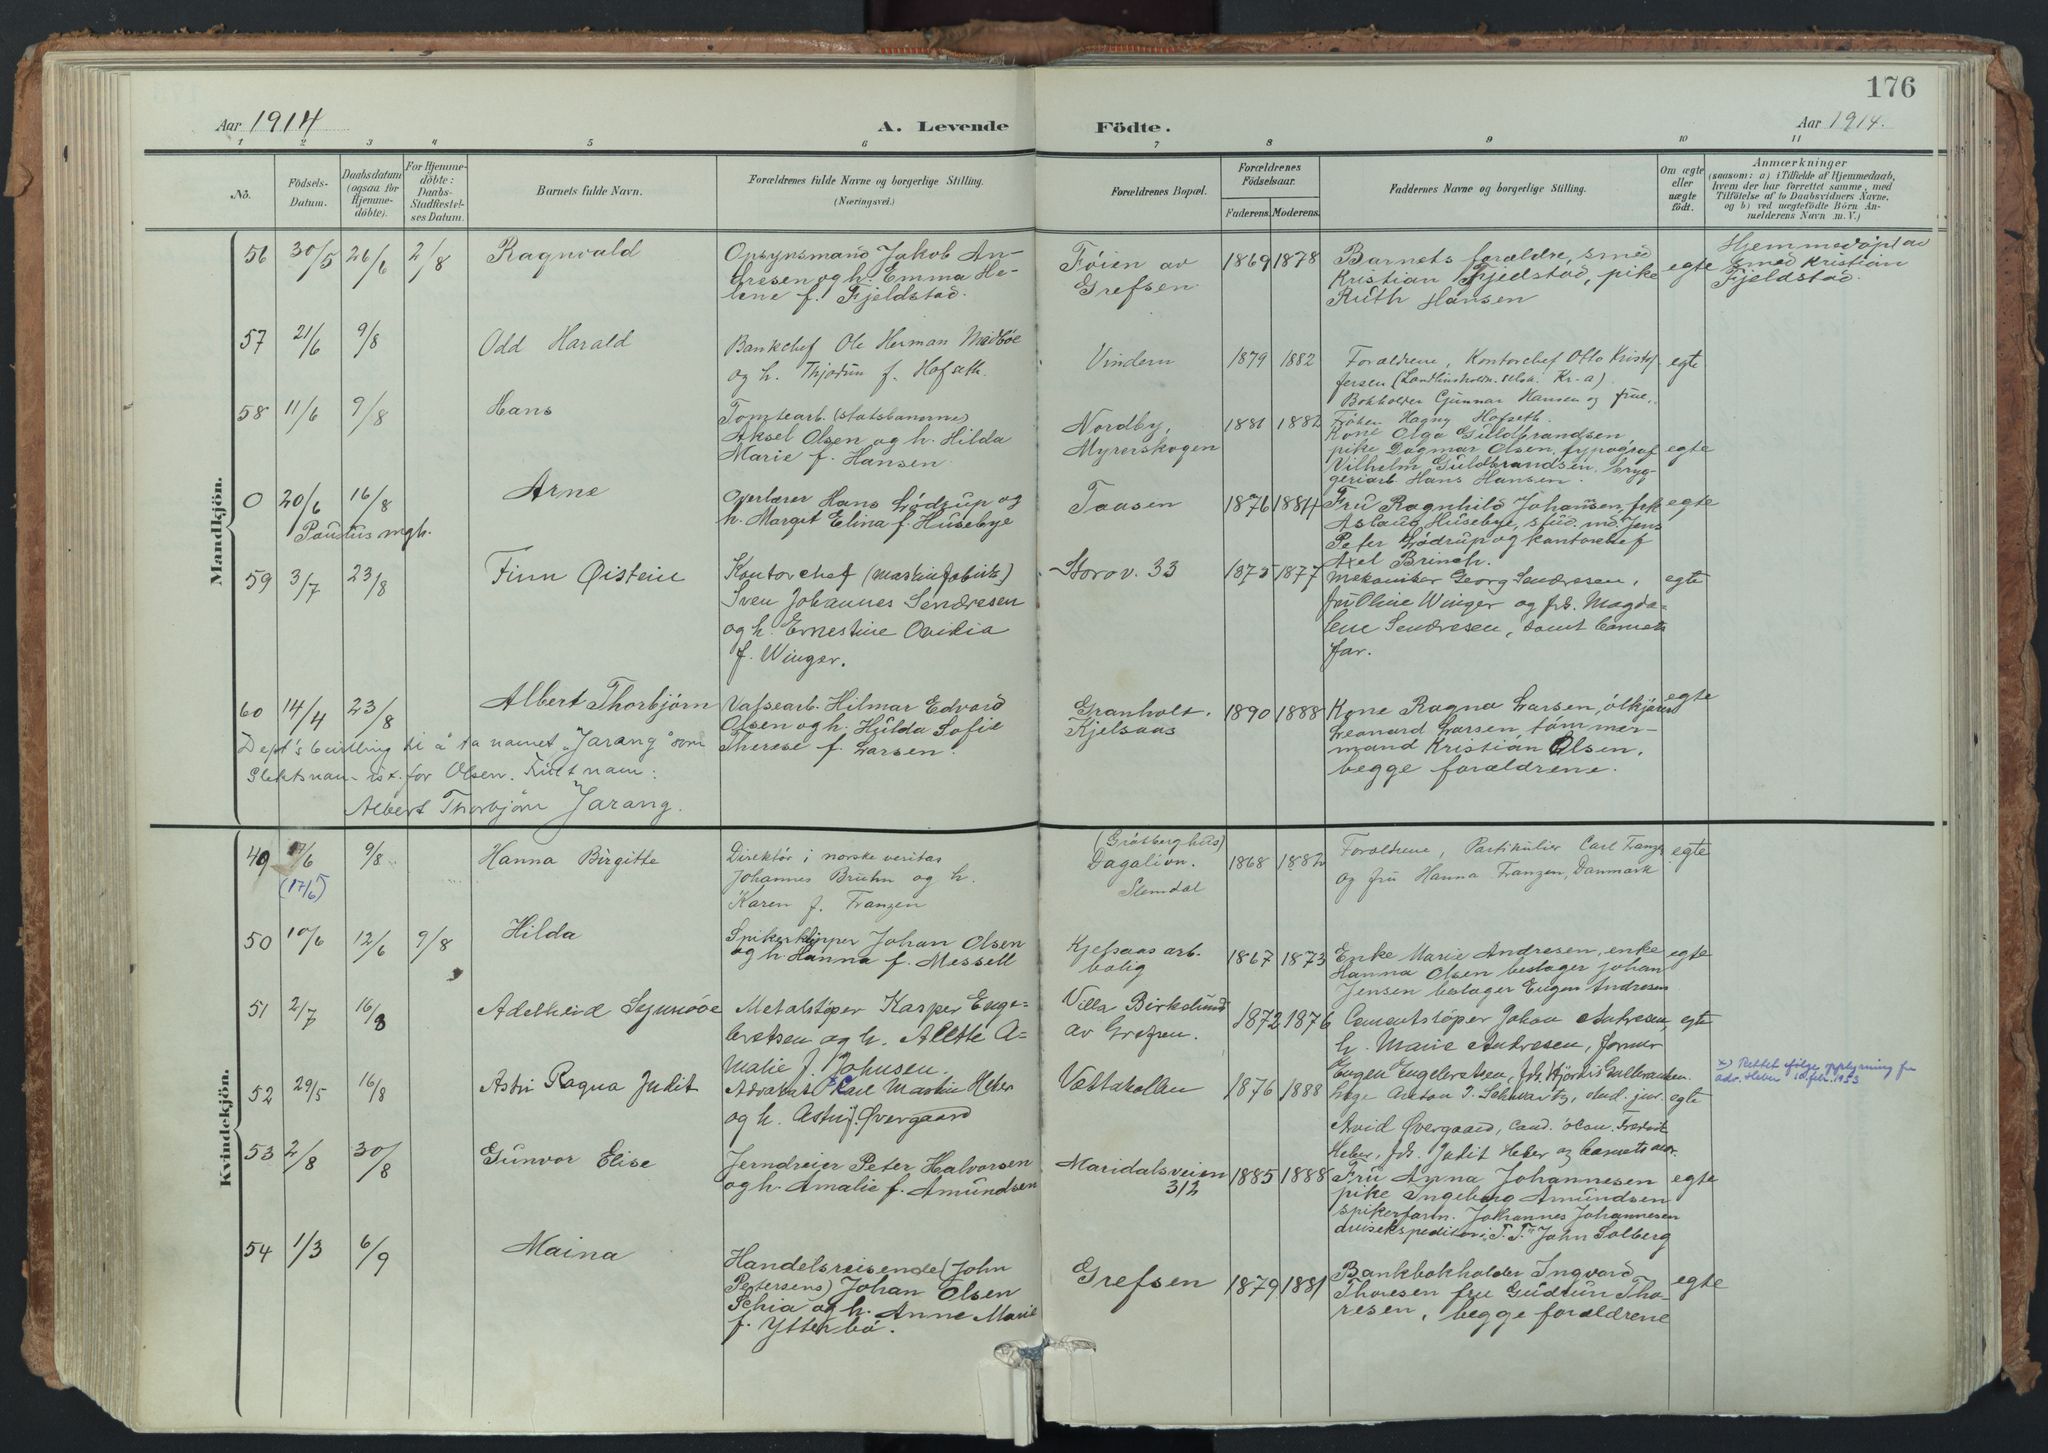 176
Aar 1914
A. Levende Födte.
Aar 1914.
1 2 3 4 5 6 7 8 9 10 11
Nö.
Födsels-Datum.
Daabsdatum (ogsaa for Hjemme-döbte).
For Hjemme-döbte: Daabs-Stadfæstel-ses Datum.
Barnets fulde Navn.
Forældrenes fulde Navne og borgerlige Stilling.
(Næringsvei.)
Forældrenes Bopæl.
Forældrenes Födselsaar.
Faderens. Moderens.
Faddernes Navne og borgerlige Stilling.
Om ægte eller uægte födt.
Anmærkninger
(saasom: a) i Tilfælde af Hjemmedaab,
hvem der har forrettet samme, med
Tilföielse af to Daabsvidners Navne,
og b) ved uægtefödte Börn An-
melderens Navn m. V.)
Mandkjön.
56 30/5 26/6 2/8 Ragnvald
Opsynsmand Jakob An-
dresen og h. Emma He-
lene f. Fjeldstad.
Føien av
Grefsen
1869 1878
Barnets forældre, smed
Kristian Fjeldstad, pike
Ruth Hansen
egte
Hjemmedøpt av
smed Kristian
Fjeldstad.
57 21/6 9/8 Odd Harald
Bankchef Ole Herman Midbøe
og h. Thjodun f. Hofseth.
Vindern
1879 1882
Forældrene, Kontorchef Otto Kristof
fersen
Bokholder Gunnar Hansen og frue,
Frøken Hagny Hofseth.
egte
58 11/6 9/8 Hans
Tomtearb. (statsbanerne)
Aksel Olsen og h. Hilda
Marie f. Hansen.
Nordby,
Myrerskogen
1881 1882
Kone Olga Guldbrandsen,
pike Dagmar Olsen, typograf
Vilhelm Guldbrandsen, bryg-
geriarb. Hans Hansen.
egte
0 20/6 16/8 Arne
Paulus mgh.
Overlærer Hans Lødrup og
h. Margit Elina f. Husebye
Taasen
1876 1884
Fru Ragnhild Johansen, frk
Aslaug Husebye, stud. md. Jens
Peter Lødrup og kontorchef
Axel Brinch.
egte
59 3/7 23/8 Finn Øistein
Kontorchef
Sven Johannes Sendresen
og h. Ernestine Ovidia
f. Winger.
Storov. 33
1875 1877
Mekaniker Georg Sendresen,
fru Oline Winger og frk. Magda-
lene Sendresen, samt barnets
far.
egte
60 14/4 23/8 Albert Thorbjørn
Valsearb. Hilmar Edvard
Olsen og h. Hulda Sofie
Therese f. Larsen.
Granholt.
Kjelsaas
1890 1888
Kone Ragna Larsen, ølkjører
Leonard Larsen, tøm mer-
mand Kristian Olsen,
begge forældrene.
egte
Dept's bevilling til å ta namet "Jarang" som
slektsnam ist. for Olsen. Fullt nam:
Albert Thorbjørn Jarang.
Kvindekjön.
49 17/6 9/8 Hanna Birgitte
(17/6)
Direktør i norske veritas
Johannes Bruhn og h.
Karen f. Franzen
Dagalivn.
Slemdal
1868 1882
Forældrene, Partikulier Carl Franzen
og fru Hanna Franzen, Danmark
egte
50 10/6 12/6 9/8 Hilda
Spikerklipper Johan Olsen
og h. Hanna f. Messell
Kjelsaas arb.
bolig
1867 1873
Enke Marie Andresen, enke
Hanna Olsen beslager Johan
Jensen beslager Eugen Andresen
egte
51 2/7 16/8 Adelheid Synnøve
Metalstøper Kasper Enge-
bretsen og h. Alette A-
malie f. Johnsen.
Villa Birkelund
av Grefsen.
1872 1876
Cementstøper Johan Andresen,
h. Marie Andresen, former
Eugen Engebretsen, frk. Hjørdis Gulbrandsen.
egte
52 29/5 16/8 Astri Ragna Judit
Advokat Carl Martin Heber
og h. Astri f. Øvergaard
Vettakollen
1876 1888
Læge Anton J. Schwartz, stud. jur.
Arvid Øvergaard, cand. økon. Fredrik
Heber, frk. Judit Heber og barnets mor.
egte
x) Rettet ifølge opplysning fra
adv. Heber 10. febr. 1953
53 2/8 30/8 Gunvor Elise
Jerndreier Peter Halvorsen
og h. Amalie f. Amundsen
Maridalsveien
312
1885 1888
Fru Anna Johannesen
pike Ingeborg Amundsen
spikerfarm. Johannes Johannesen
avisekspeditør i "T. T." John Solberg
egte
54 1/3 6/9 Maina
Handelsreisende (John
Petersens) Johan Olsen
Schia og h. Anne Marie
f. Ytterbø.
Grefsen
1879 1881
Bankbokholder Ingvard
Thoresen fru Gudrun Tho-
resen, begge forældrene
egte